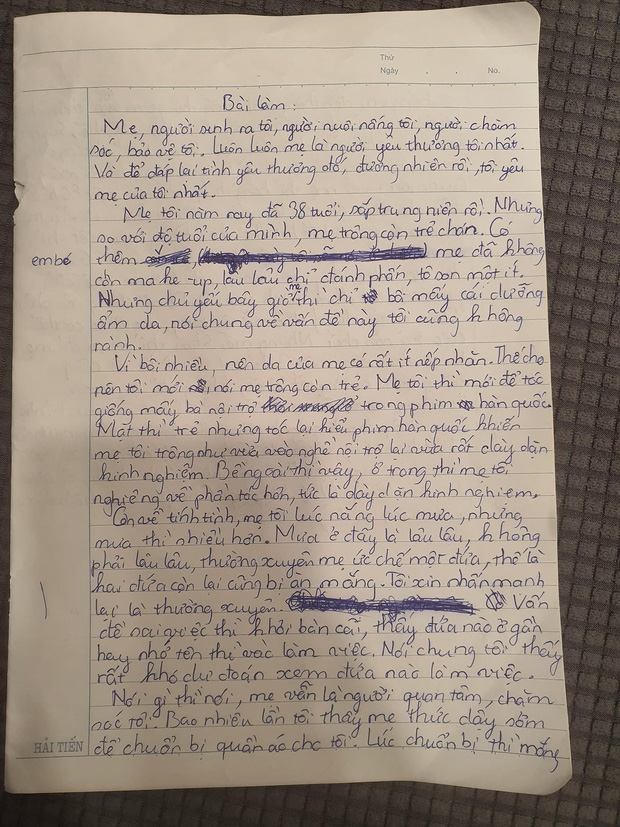 Thứ
Ngày . . No.
Bài làm:
Mẹ, người sinh ra tôi, người nuôi nấng tôi, người chăm
sóc, bảo vệ tôi. Luôn luôn mẹ là người yêu thương tôi nhất.
Và để đáp lại tình yêu thương đó, đương nhiên rồi, tôi yêu
mẹ của tôi nhất.
Mẹ tôi năm nay đã 38 tuổi, sắp trung niên rồi. Nhưng
so với độ tuổi của mình, mẹ trông còn trẻ chán. Có
thêm em bé mẹ đã không
còn make-up, lâu lâu chỉ đánh phấn, tô son một ít.
Nhưng chủ yếu bây giờ mẹ thì chỉ bôi mấy cái dưỡng
ẩm da, nói chung về vấn đề này tôi cũng không
rành.
Vì bôi nhiều, nên da của mẹ có rất ít nếp nhăn. Thế cho
nên tôi mới nói mẹ trông còn trẻ. Mẹ tôi thì mới để tóc
giống mấy bà nội trợ trong phim hàn quốc.
Mặt thì trẻ nhưng tóc lại kiểu phim hàn quốc khiến
mẹ tôi trông như vừa vào nghề nội trợ lại vừa rất dày dặn
kinh nghiệm. Bề ngoài thì vậy, ở trong thì mẹ tôi
nghiêng về phần tóc hơn, tức là dày dặn kinh nghiệm.
Còn về tính tình, mẹ tôi lúc nắng lúc mưa, nhưng
mưa thì nhiều hơn. Mưa ở đây là lâu lâu, không
phải lâu lâu, thường xuyên mẹ ức chế một đứa, thế là
hai đứa còn lại cũng bị ăn mắng. Tôi xin nhấn mạnh
lại là thường xuyên. Vấn
đề sai việc thì khỏi bàn cãi, thấy đứa nào ở gần
hay nhớ tên thì vào làm việc. Nói chung tôi thấy
rất khó dự đoán xem đứa nào làm việc.
Nói gì thì nói, mẹ vẫn là người quan tâm, chăm
sóc tôi. Bao nhiêu lần tôi thấy mẹ thức dậy sớm
để chuẩn bị quần áo cho tôi. Lúc chuẩn bị thì mắng
HẢI TIẾN